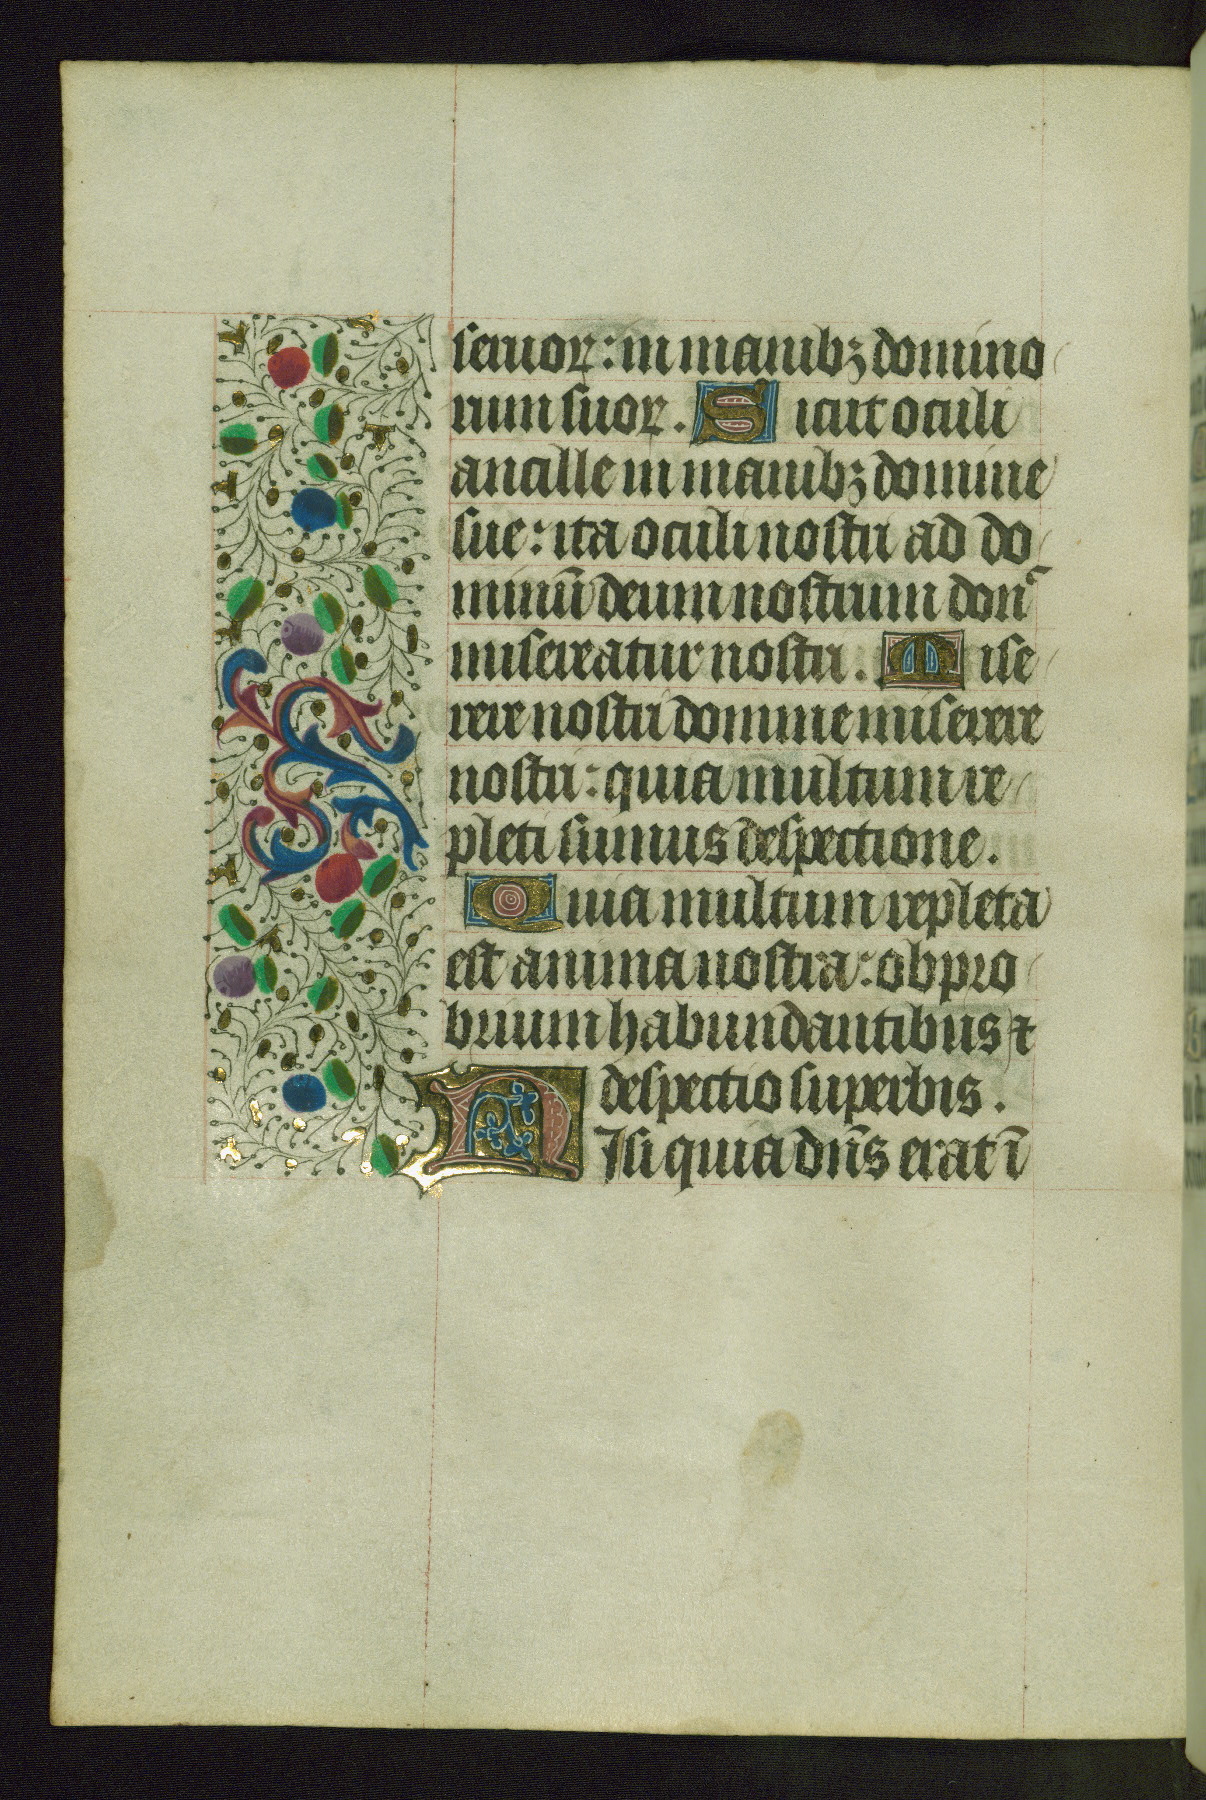 seruoꝝ: in manibꝫ domino
rum suoꝝ. Sicut oculi
ancille in manibꝫ domine
sue: ita oculi nostri ad do
minū deum nostrum don̄
misereatur nostri. Mise
rere nostri domine miserere
nostri: quia multum re
pleti sumus despectione.
Quia multum repleta
est anima nostra: obpro
brium habundantibus ⁊
despectio superbis.
Nisi quia dn̄s erat ī